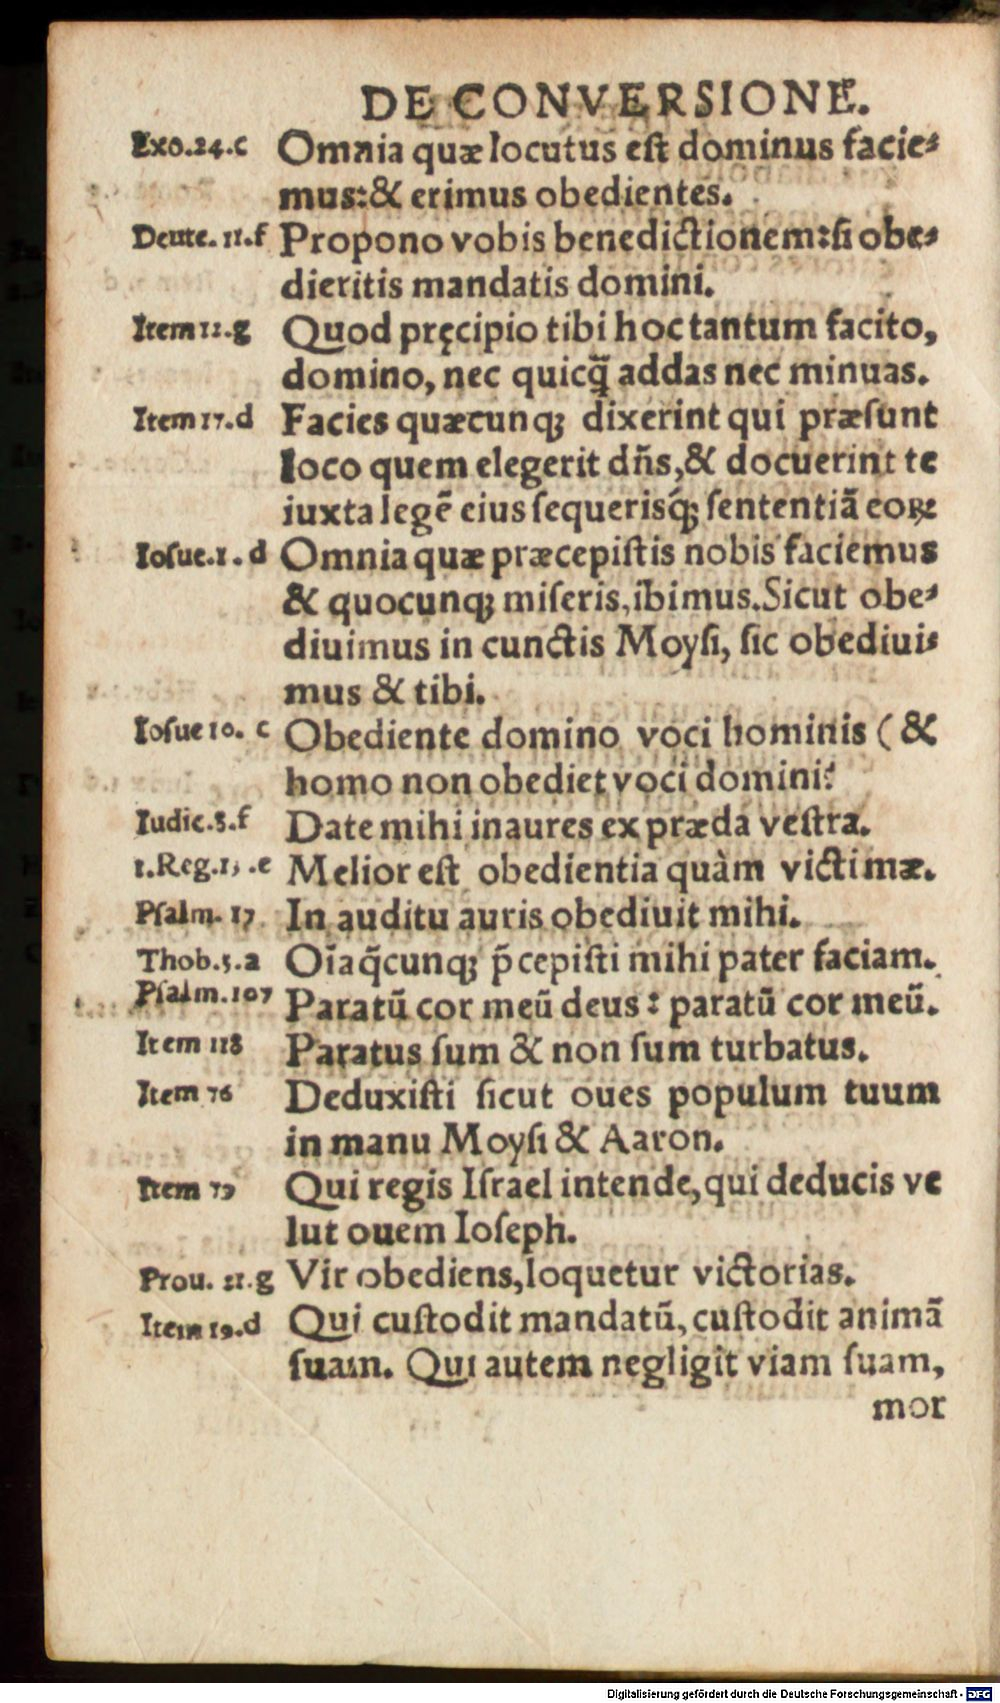 DE CONVERSIONE.
Exo.24.c Omnia quæ locutus eſt dominus facie⸗
mus:& erimus obedientes.
Deute. 11.f Propono vobis benedictionem:ſi obe⸗
dieritis mandatis domini.
Item 12.g Quod pręcipio tibi hoc tantum facito,
domino, nec quicq̃ addas nec minuas.
Item 17.d Facies quæcunqꝫ dixerint qui præſunt
loco quem elegerit dn̄s,& docuerint te
iuxta legē eius ſequerisq́ꝫ ſententiā eoꝝ
Ioſue.1.d Omnia quæ præcepiſtis nobis faciemus
& quocunqꝫ miſeris, ibimus. Sicut obe⸗
diuimus in cunctis Moyſi, ſic obediui⸗
mus & tibi.
Ioſue 10. c Obediente domino voci hominis ( &
homo non obediet voci domini?
Iudic.8.f Date mihi inaures ex præda veſtra.
1.Reg.15.e Melior eſt obedientia quàm victimæ.
Pſalm. 17 In auditu auris obediuit mihi.
Thob.5.a Oīa q̄cunqꝫ p̄cepiſti mihi pater faciam.
Pſalm.107 Paratū cor meū deus: paratū cor meū.
Item 118 Paratus ſum & non ſum turbatus.
Item 76 Deduxiſti ſicut oues populum tuum
in manu Moyſi & Aaron.
Item 79 Qui regis Iſrael intende, qui deducis ve
lut ouem Ioſeph.
Prou. 21.g Vir obediens, loquetur victorias.
Item 19.d Qui cuſtodit mandatū, cuſtodit animā
ſuam. Qui autem negligit viam ſuam,
mor
Digitalisierung gefördert durch die Deutsche Forschungsgemeinschaft - DFG